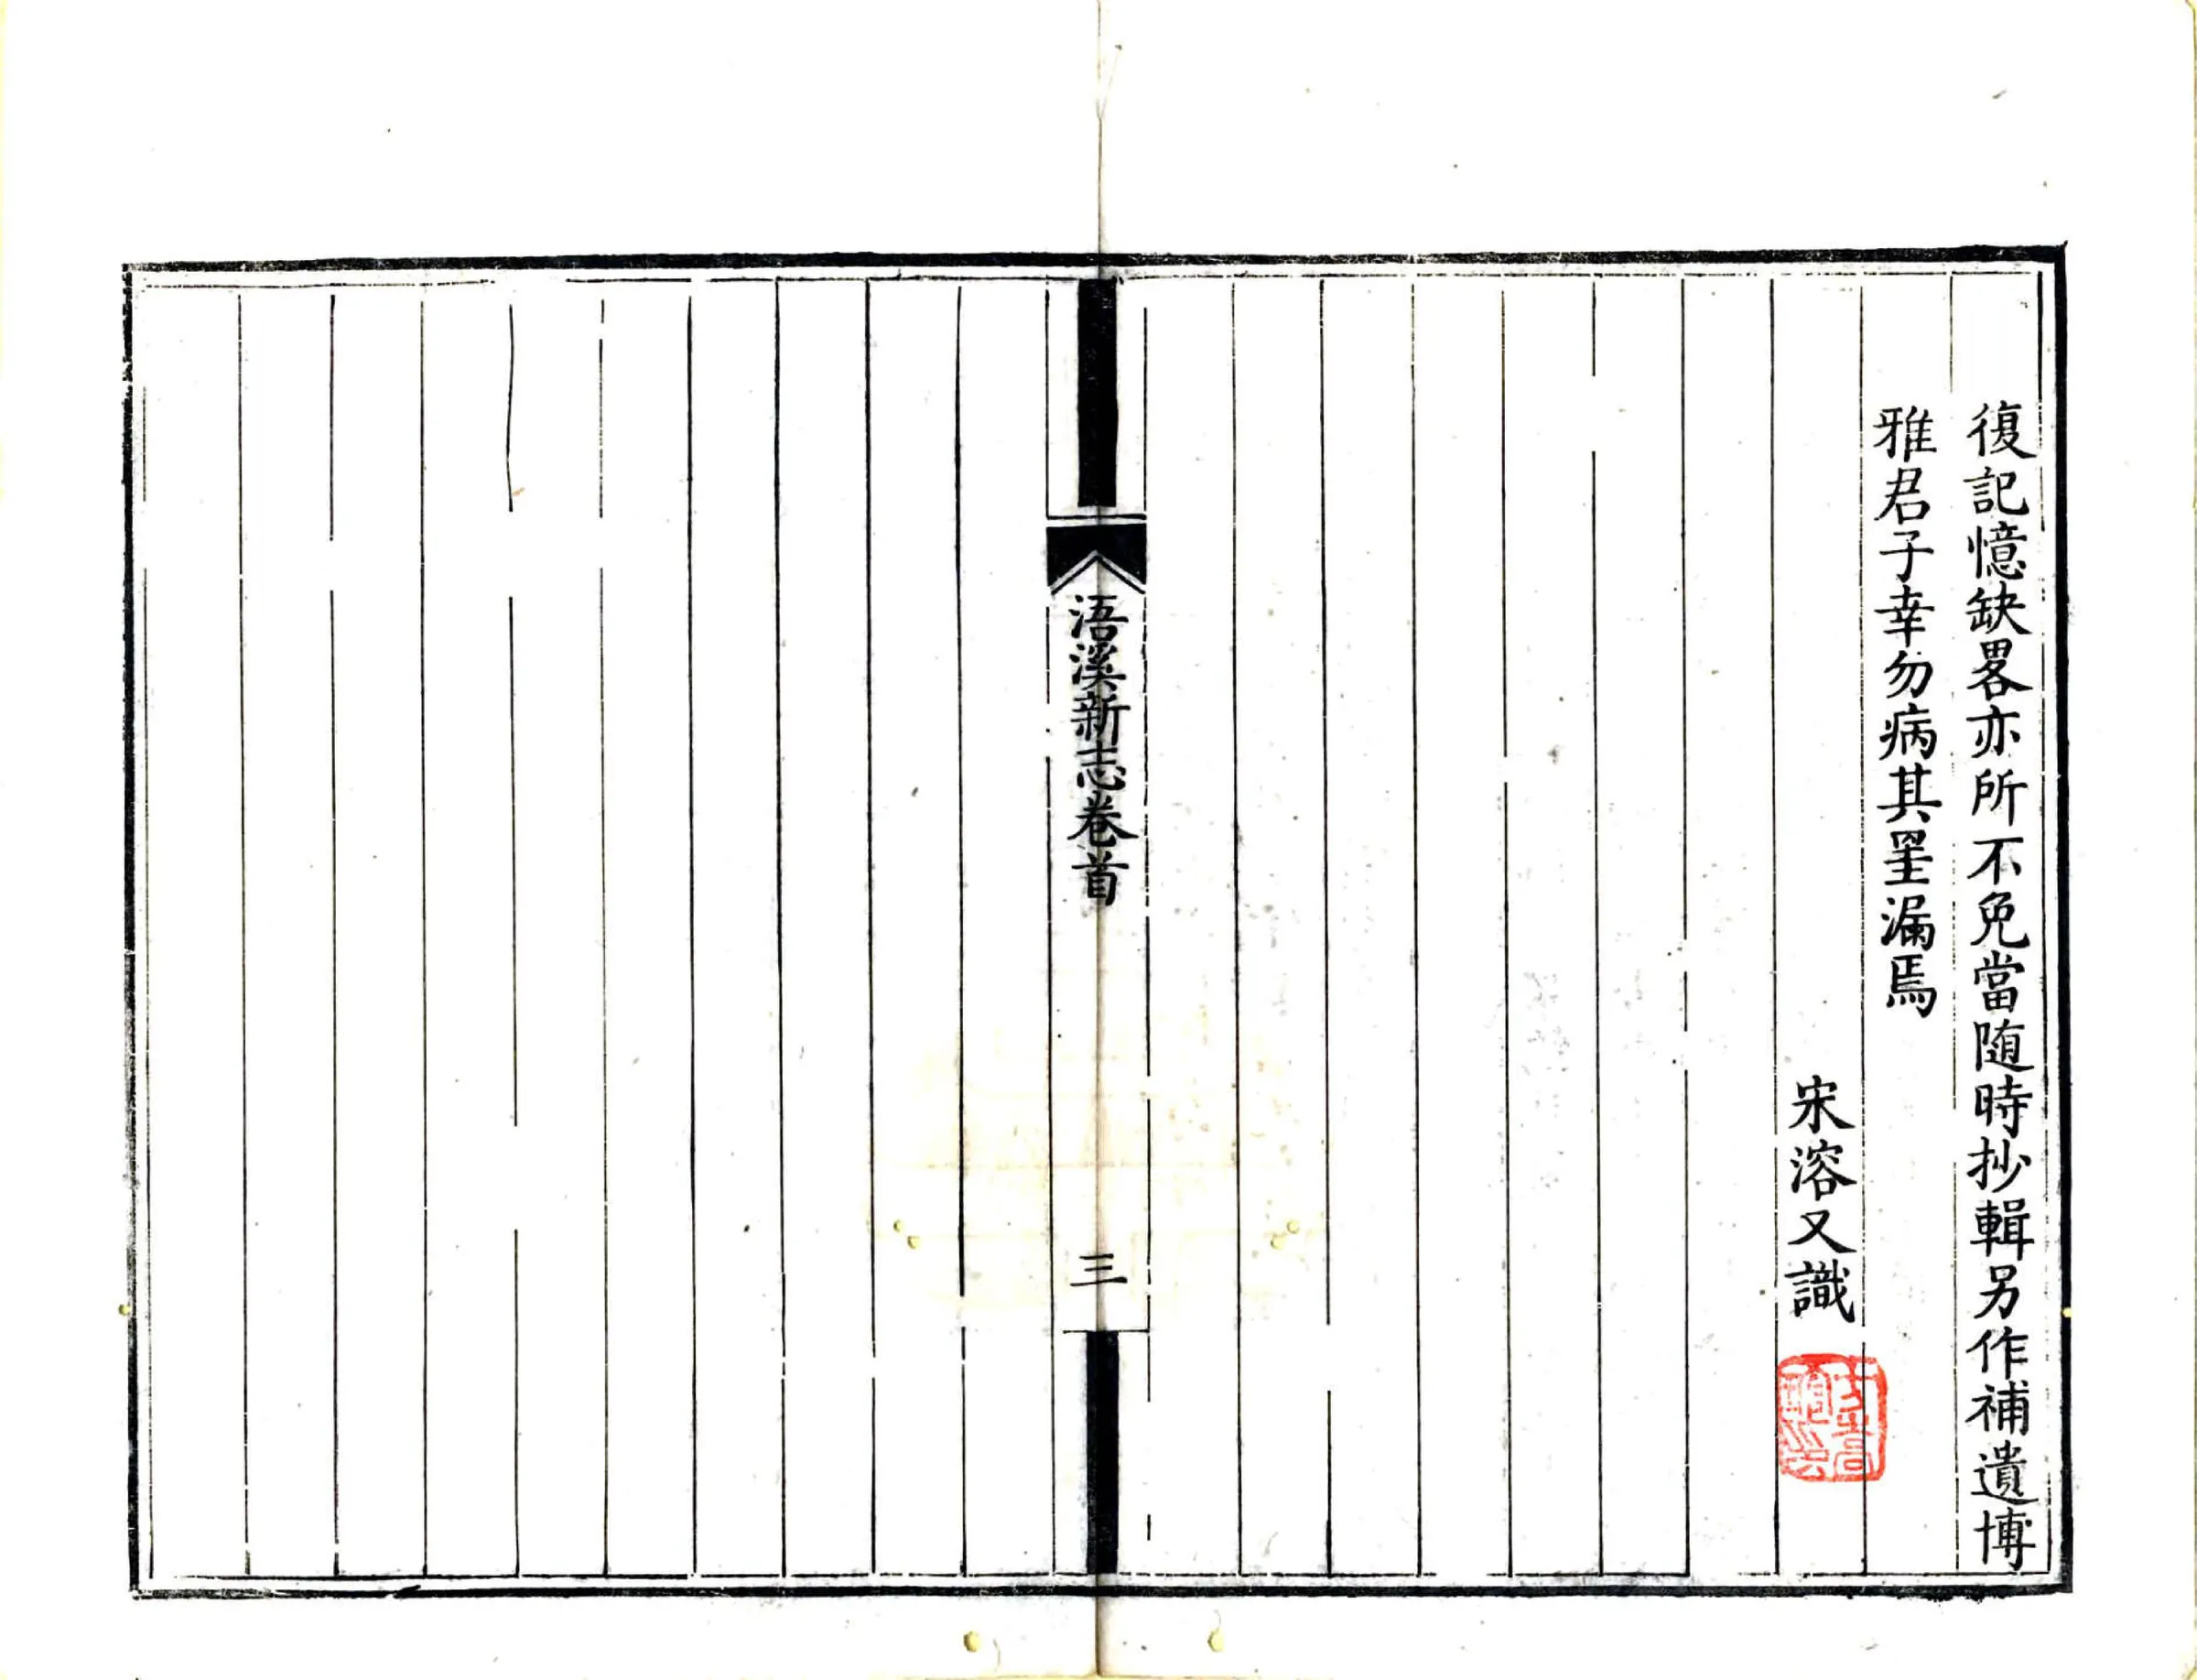 復記憶缺畧亦所不免當随時抄輯另作補遺博
雅君子幸勿病其罣漏焉
宋溶又識
浯溪新志卷首
三